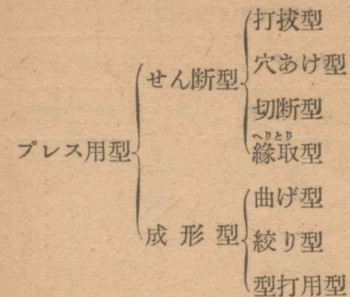 プレス用型
せん断型
打抜型
穴あけ型
切断型
へりとり
縁取型
成形型
曲げ型
絞り型
型打用型